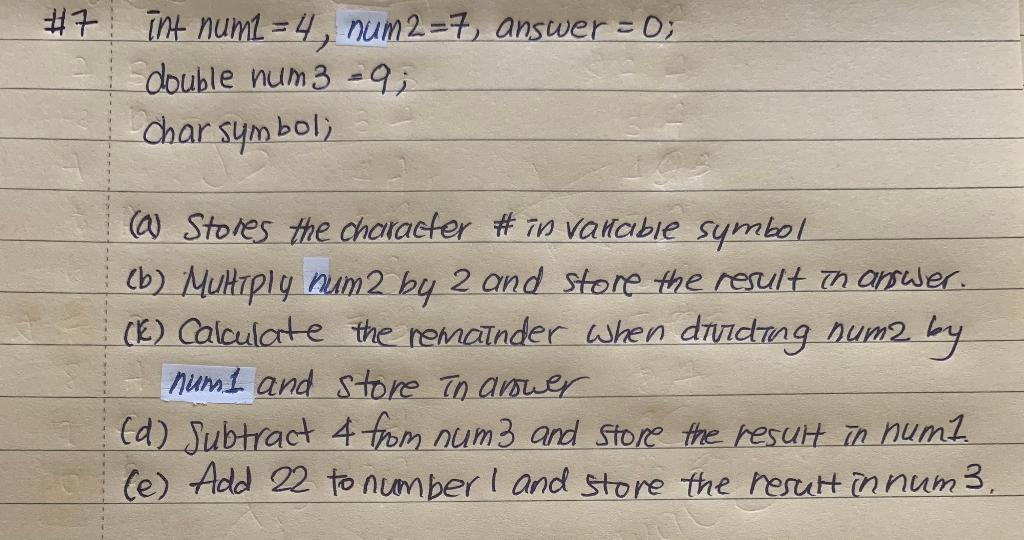 #7 int num1 = 4, num2=7, answer = 0;
double num3 = 9;
char symbol;
(a) Stores the character # in variable symbol
(b) Multiply num2 by 2 and store the result in answer.
(c) Calculate the remainder when dividing num2 by
num1 and store in answer
(d) Subtract 4 from num3 and store the result in num1.
(e) Add 22 to number 1 and store the result in num3.